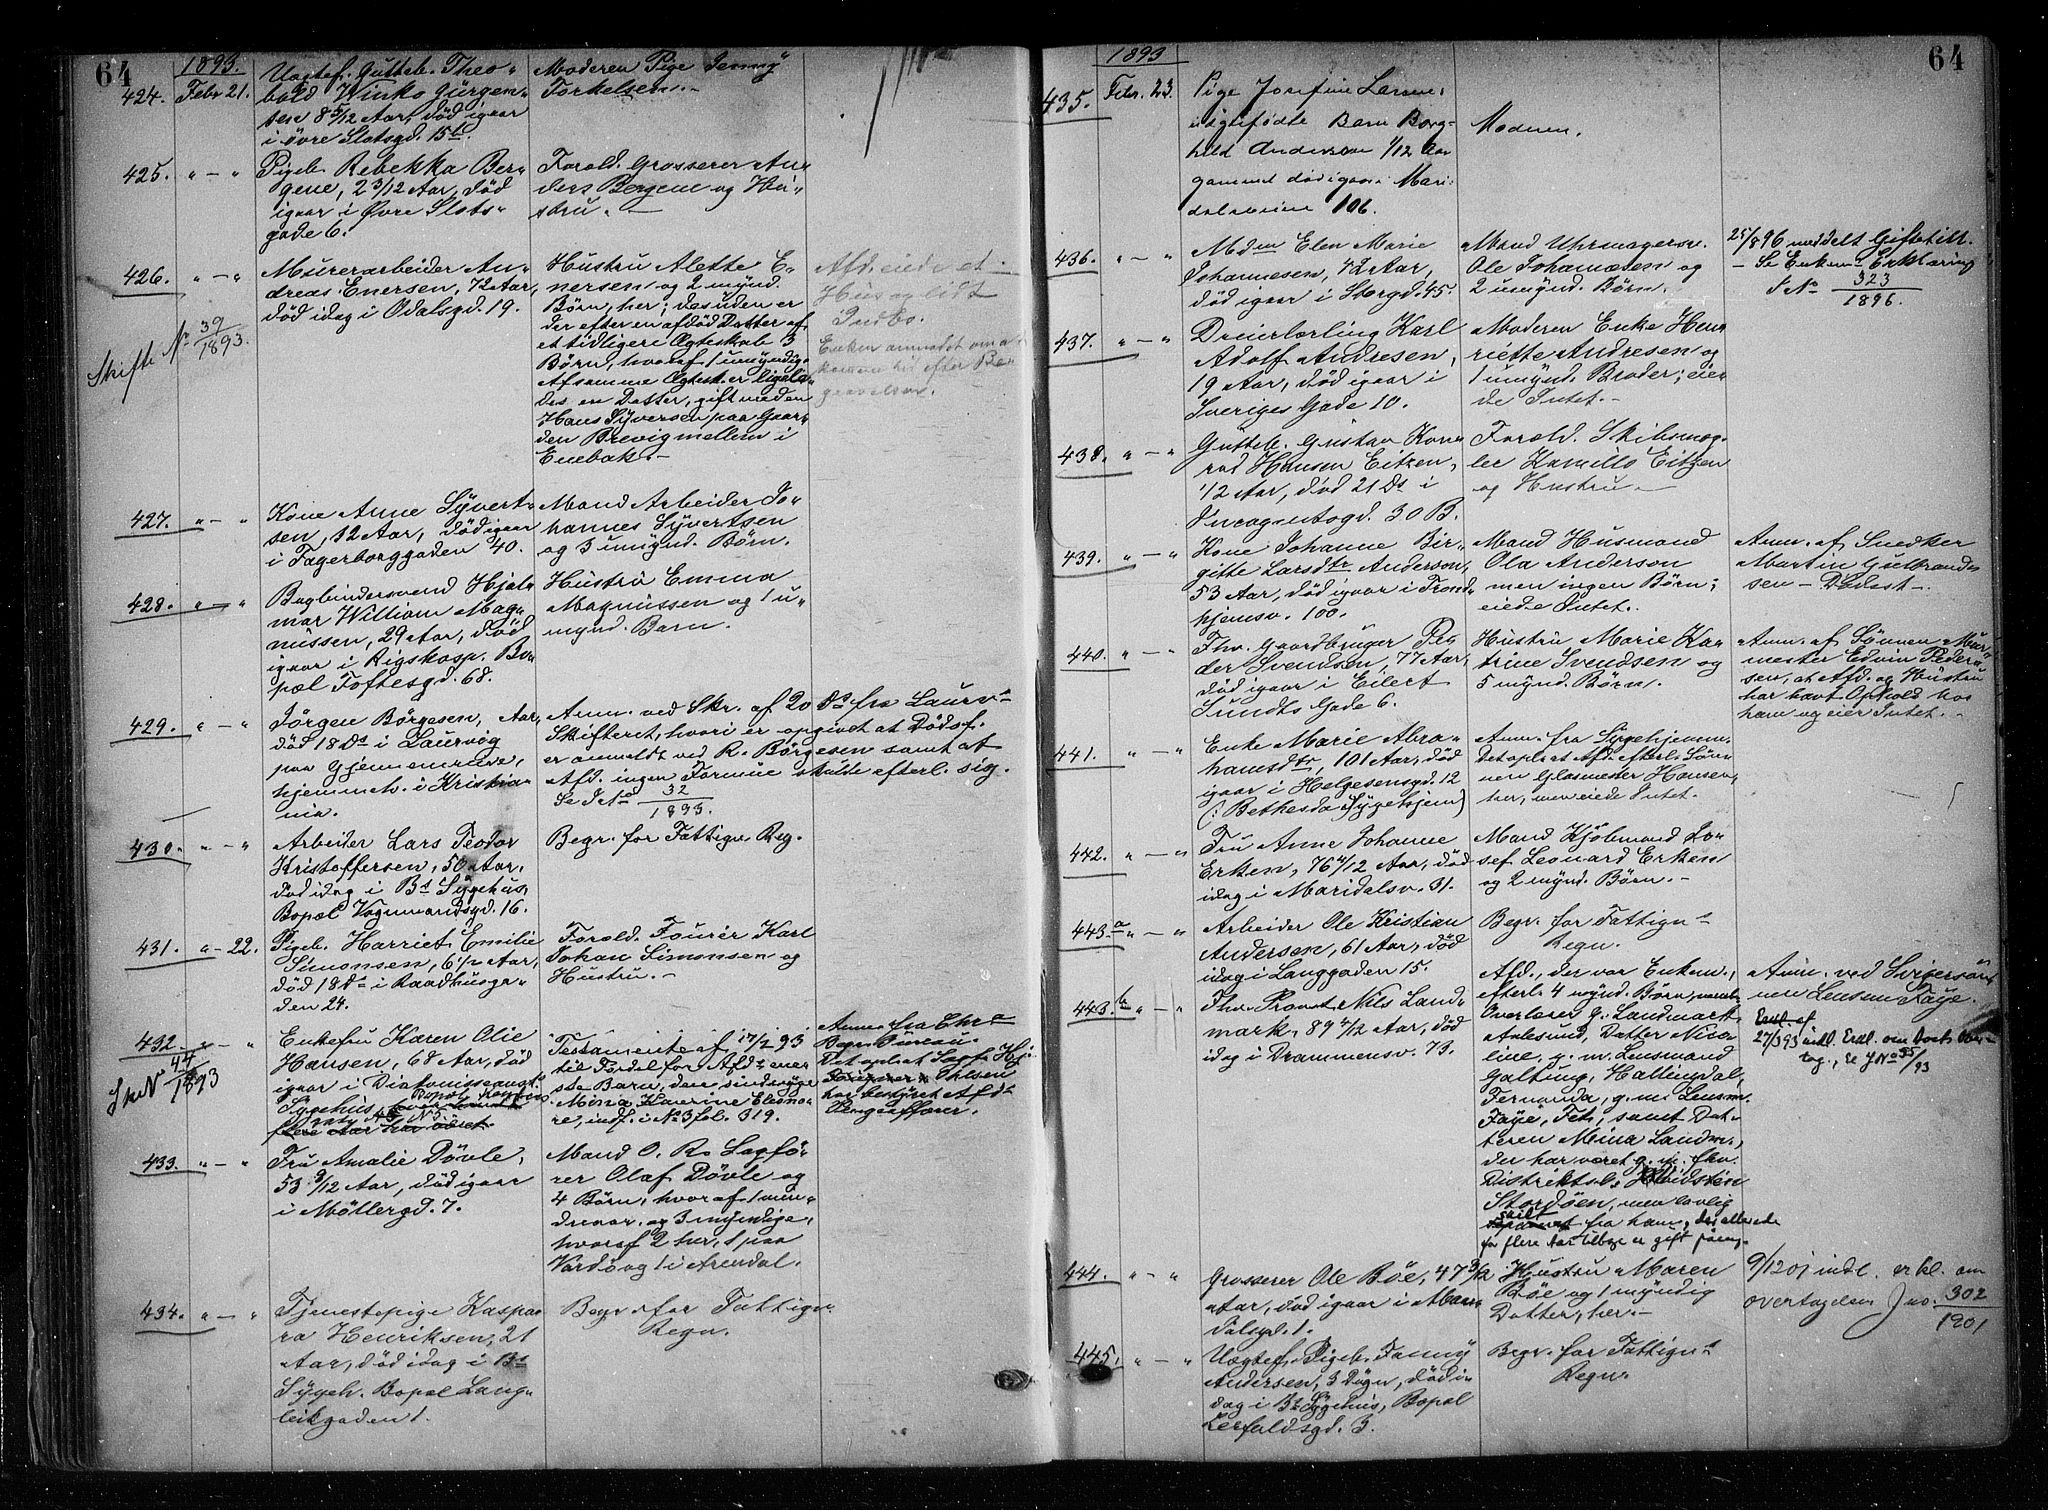 64
1893.
424. Febr 21.
Uægtef. Gutteb. Theo-
bald Winko Jürgen-
sen 8 5/12 Aar, død igaar
i øvre Slotsgd. 15 b.
Moderen Pige Jenny
Torkelsen.
425. " — "
Pigeb. Rebekka Ber-
gene, 2 3/12 Aar, død
igaar i Øvre Slots-
gade 6.
Foræld. Grosserer An-
ders Bergene og Hu-
stru. —
426. " — "
Skifte No 39/1893.
Murerarbeider An-
dreas Enersen, 72 Aar,
død idag i Odalsgd. 19.
Hustru Alette E-
nersen og 2 mynd.
Børn, her; desuden er
der efter en afdød Datter af
et tidligere Ægteskab 3
Børn, hvoraf 1 umyndig.
Af samme Ægtesk. er ligele-
des en Datter, gift med en
Hans Syversen paa Gaar-
den Brevig mellem i
Enebak. —
Afd. eiede et
Hus og lidt
Indbo.
Enken anmodet om at
komme hid efter Be-
gravelsen.
427. " — "
Kone Anne Syvert-
sen, 32 Aar, død igaar
i Fagerborggaden 40.
Mand Arbeider Jo-
hannes Syvertsen
og 3 umynd. Børn.
428. " — "
Bogbindersvend Hjal-
mar William Mag-
nussen, 29 Aar, død
igaar i Rigshosp. Bo-
pæl Toftesgd. 68.
Hustru Emma
Magnussen og 1 u-
mynd. Barn.
429. " — "
Jørgen Børgesen, Aar,
død 18 Ds i Laurvig
paa Gjennemreise,
hjemmeh. i Kristia-
nia.
Anm. ved Skr. af 20 Ds fra Laurvs
Skifteret, hvori er opgivet at Dødsf.
er anmeldt ved R. Børgesen samt at
Afd. ingen Formue skulde efterl. sig.
Se J No 32/1893.
430. " — "
Arbeider Lars Teodor
Kristoffersen, 50 Aar,
død idag i Bs Sygehus,
Bopæl Vognmandsgd. 16.
Begr. for Fattign. Reg.
431. " — 22.
Pigeb. Harriet Emilie
Simonsen, 6 1/2 Aar,
død 18 Ds i Raadhusga-
den 24.
Foræld. Fourér Karl
Johan Simonsen og
Hustru. —
432. " — "
Sk No 44/1893
Enkefru Karen Olie
Hansen, 68 Aar, død
igaar i Diakonisseanst.s
Sygehus,
Testamente af 17/2 93
til Fordel for Afds ene-
ste Barn, den sindssyge
Mina Kaurine Eleono-
re, indf. i No 3 fol. 319.
Anm. fra Chra
Begr. Bureau.
Det opl. at Sagf. Hj.
Ohlsen
har bestyret Afds
Pengeaffærer.
433. " — "
Fru Amalie Døvle,
53 9/12 Aar, død igaar
i Møllergd. 7.
Mand O. R. Sagfø-
rer Olaf Døvle og
4 Børn, hvoraf 1 min-
dreaar. og 3 myndige,
hvoraf 2 her, 1 paa
Vardø og 1 i Arendal.
434. " — "
Tjenestepige Kaspa-
ra Henriksen, 21
Aar, død idag i Bs
Sygeh. Bopæl Lang-
leikgaden 1.
Begr. for Fattign.
Regn.
64
1893
435. Febr. 23.
Pige Josefine Larsens
uægtefødte Barn Borg-
hild Anderson 1/12 Aar
gammel død igaar i Mari-
dalsveien 106.
Moderen.
436. " — "
Mdm Elen Marie
Johannesen, 42 Aar,
død igaar i Storgd. 45.
Mand Uhrmagersv.
Ole Johannesen og
2 umynd. Børn.
25/8 96 meddelt Giftetill.
— Se Enkem. Erklæring
J No 323/1896.
437. " — "
Dreierlærling Karl
Adolf Andresen,
19 Aar, død igaar i
Sveriges Gade 10.
Moderen Enke Hen-
riette Andresen og
1 umynd. Broder; eie-
de Intet. —
438. " — "
Gutteb. Gustav Kon-
rad Hansen Eitzen,
1/2 Aar, død 21 Ds i
Incognitogd. 30 B.
Foræld. Skibsmæg-
ler Kamillo Eitzen
og Hustru. —
439. " — "
Kone Johanne Bir-
gitte Larsdtr Anderson,
53 Aar, død igaar i Trond-
hjemsv. 100.
Mand Husmand
Ola Anderson
men ingen Børn;
eiede Intet.
Anm. af Snedker
Martin Gulbrand-
sen —
440. " — "
Fhv. Gaardbruger Pe-
der Svendsen, 77 Aar,
død igaar i Eilert
Sundts Gade 6.
Hustru Marie Ka-
trine Svendsen og
5 mynd. Børn.
Anm. af Sønnen Mur-
mester Edvin Peder-
sen, at Afd. og Hustru
har havt Ophold hos
ham og eier Intet. —
441. " — "
Enke Marie Abra-
hamsdtr, 101 Aar, død
igaar i Helgesensgd. 12
(: Bethesda Sygehjem)
Anm. fra Sygehjemm.
Det opl. at Afd. efterl. Søn-
nen Glasmester Hansen,
her, men eiede Intet.
442. " — "
Fru Anne Johanne
Erken, 76 4/12 Aar, død
idag i Maridalsv. 31.
Mand Kjøbmand Jo-
sef Leonard Erken
og 2 mynd. Børn. —
443. a " — "
Arbeider Ole Kristian
Andersen, 61 Aar, død
idag i Langgaden 15.
Begr. for Fattigns
Regn.
443. b " — "
Fhv. Provst Nils Land-
mark, 89 4/12 Aar, død
idag i Drammensv. 73.
Afd., der var Enkem.,
efterl. 4 mynd. Børn,
Overlærer G. Landmark
Aalesund, Datter Nico-
line, g. m. Lensmand
Galtung, Hallingdal,
Fernanda, g. m. Lensm.
Faye, Fet, samt Dat-
teren Meina Landm.,
der har været g. m. fhv.
Distriktsl.
Stordøen, men lovlig
skilt fra ham, der allerede
for flere Aar tilbage er gift paany.
Anm. ved Svigersøn-
nen Lensm Faye.
27/3 93 indl. Erkl. om Boets Over-
tag., se J No 55/93
444. " — "
Grosserer Ole Bøe, 47 3/12
Aar, død igaar i Mari-
dalsgd. 1.
Hustru Maren
Bøe og 1 myndig
Datter, her. —
9/12 01 indl. erkl. om
overtagelse Jno. 302/1901
445. " — "
Uægtef. Pigeb. Fanny
Andersen, 3 Døgn, død i-
dag i Bs Sygehus, Bopæl
Herfuldsgd. 3.
Begr. for Fattigns
Regn.